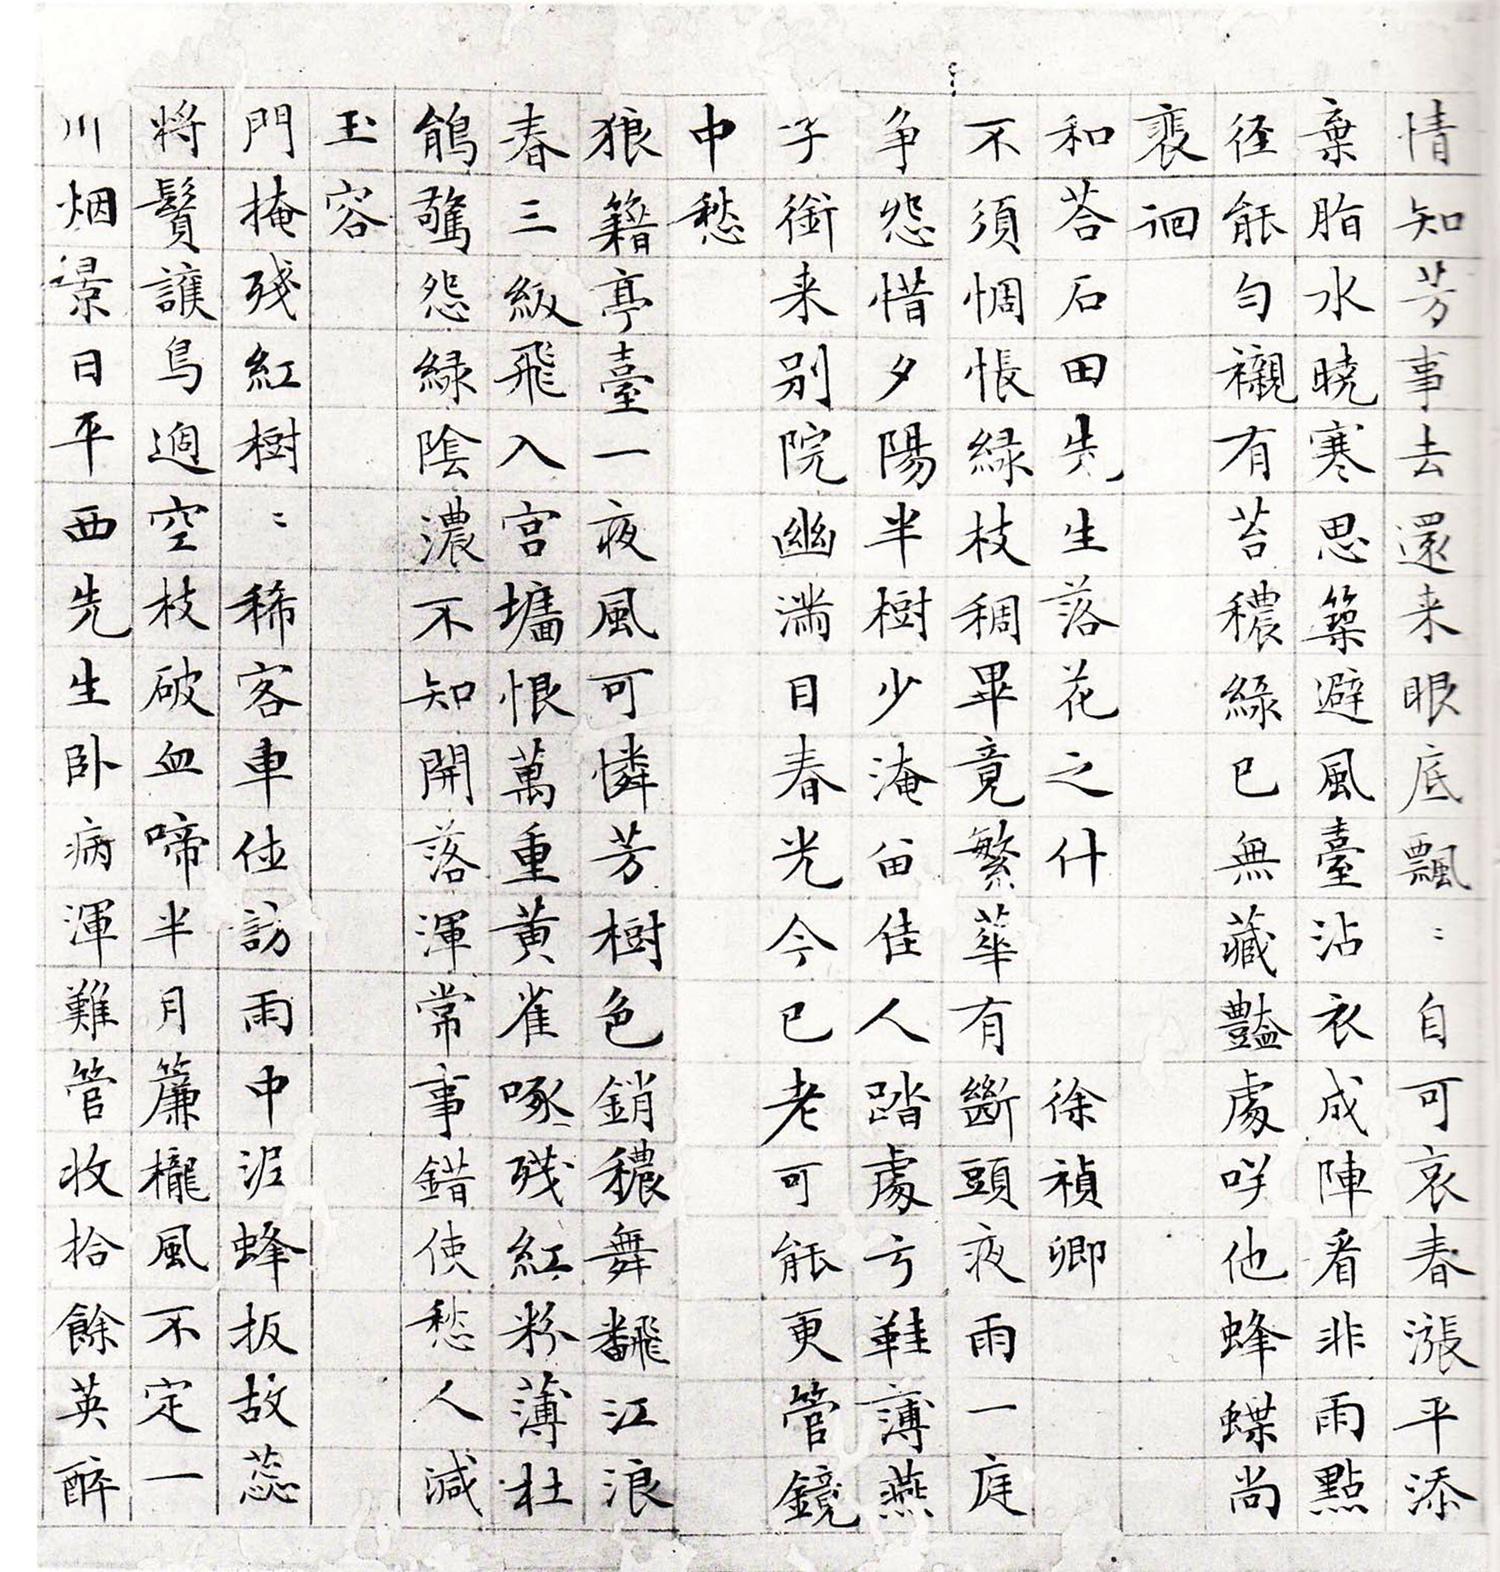 情知芳事去還来眼底飄〻自可哀春漲平添
棄脂水曉寒思築避風臺沾衣成陣看非雨點
径能匀襯有苔穠緑已無藏豔處咲他蜂蝶尚
裵徊
和荅石田先生落花之什 徐禎卿
不須惆悵緑枝稠畢竟繁華有斷頭夜雨一庭
争怨惜夕陽半樹少淹留佳人踏處弓鞋薄燕
子銜来别院幽満目春光今已老可能更管鏡
中愁
狼籍亭臺一夜風可憐芳樹色銷穠舞飜江浪
春三級飛入宫墻恨萬重黄雀啄殘紅粉薄杜
鵑驚怨緑陰濃不知開落渾常事錯使愁人減
玉容
門掩殘紅樹〻稀客車佳訪雨中泥蜂扳故蕊
将鬚護鳥遶空枝破血啼半月簾櫳風不定一
川烟景日平西先生卧病渾難管收拾餘英醉